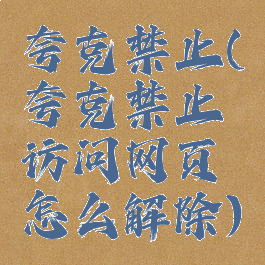 夸克禁止(
夸克禁止
访问网页
怎么解除)